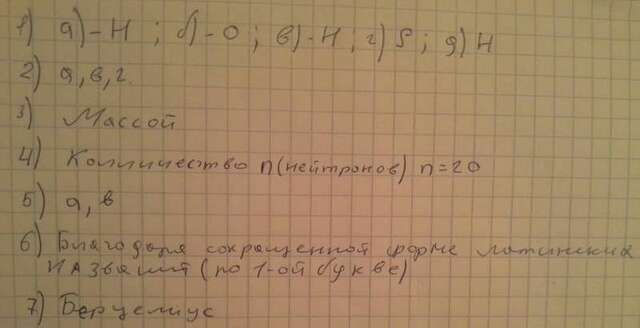 1) а) - Н ; б) - О ; в) - Н ; г) S ; д) Н
2) а, в, г.
3) Массой
4) Количество n (нейтронов) n = 20
5) а, в
6) Благодаря сокращенной форме латинских
названий (по 1-ой букве)
7) Берцелиус